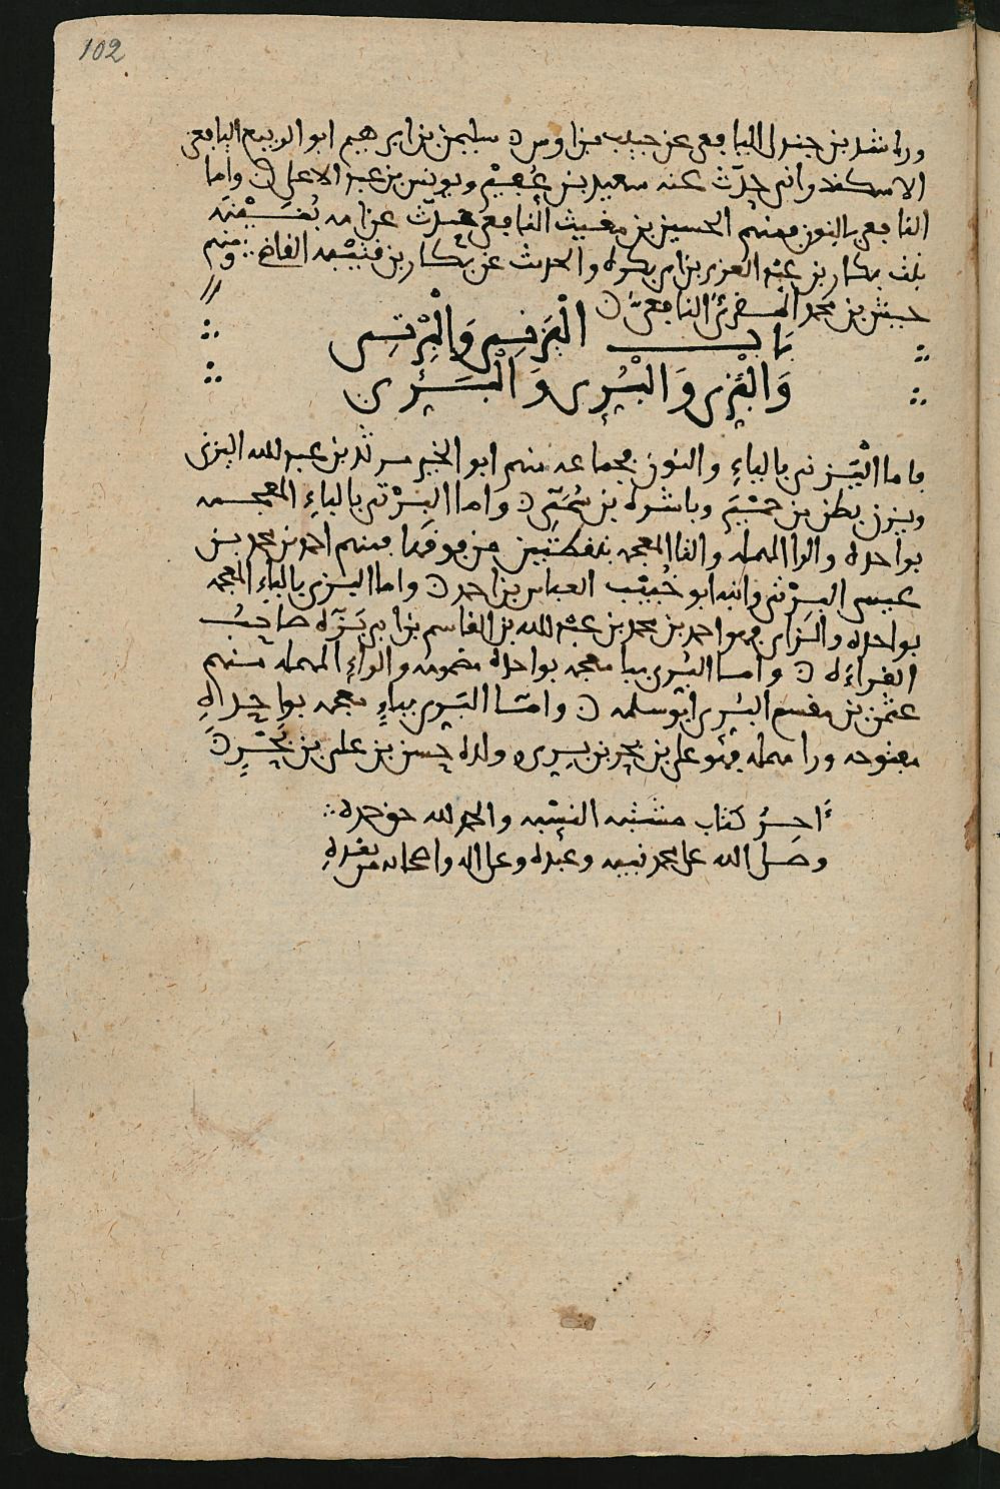 102
وراشد بن جندل اليافعي عن حبيب بن اوس ن سليمن بن ابرهيم ابو الربيع اليافعي
الاسكندراني حدّث عنه سعيد بن عُفَيْر ويونس بن عبد الاعلى ن واما
النافعي بالنون فمنهم الحسين بن مغيث النافعي حدّث عن
بكار بن عبد العزيز بن ابي بكره والحديث عن بكار بن قتيبه القاضي ومنهم
حبيش بن محمد المقرئ النافعي ن
بَاب اليَزَنِي وَالْبِرْتِي
وَالْبَزِّي وَالْبُسْرِي وَالْبَسَرِي ن
فاما الْيَزَني بالياءِ والنون فجماعه منهم ابو الخير مرثد بن عبد الله اليزني
ويزن بطن من حمْيَر وباشره بن سُمَيّ ن واما البِرْتي بالباءِ المعجمه
بواحده والرا المهمله والتا المعجمه بنقطتين من فوقها فمنهم احمد بن محمد بن
عيسى البِرْتي وابنه ابو خُبَيْب العباس بن احمد ن واما البزي بالباءِ المعجمه
بواحده والزاي فهو احمد بن محمد بن عبد الله بن القاسم بن ابي بَزَّه صاحبُ
القراءَه ن واما البُسْري ببا معجمه بواحده مضمومه والراءِ المهمله فمنهم
عثمن بن مقسم البُرّي ابو سلمه ن وامّا البَرّي بباءٍ معجمه بواحدهٍ
مفتوحه ورا مهمله فهو علي بن بحر بن بري وولده حسن بن علي بن بَحْرٍ ن
اخِرُ كتاب مشتبه النِسْبه والحمد لله حق حمده
وصَلى الله على محمد نبيه وعَبْده وعلى اله واصحابه من بعْدهِ